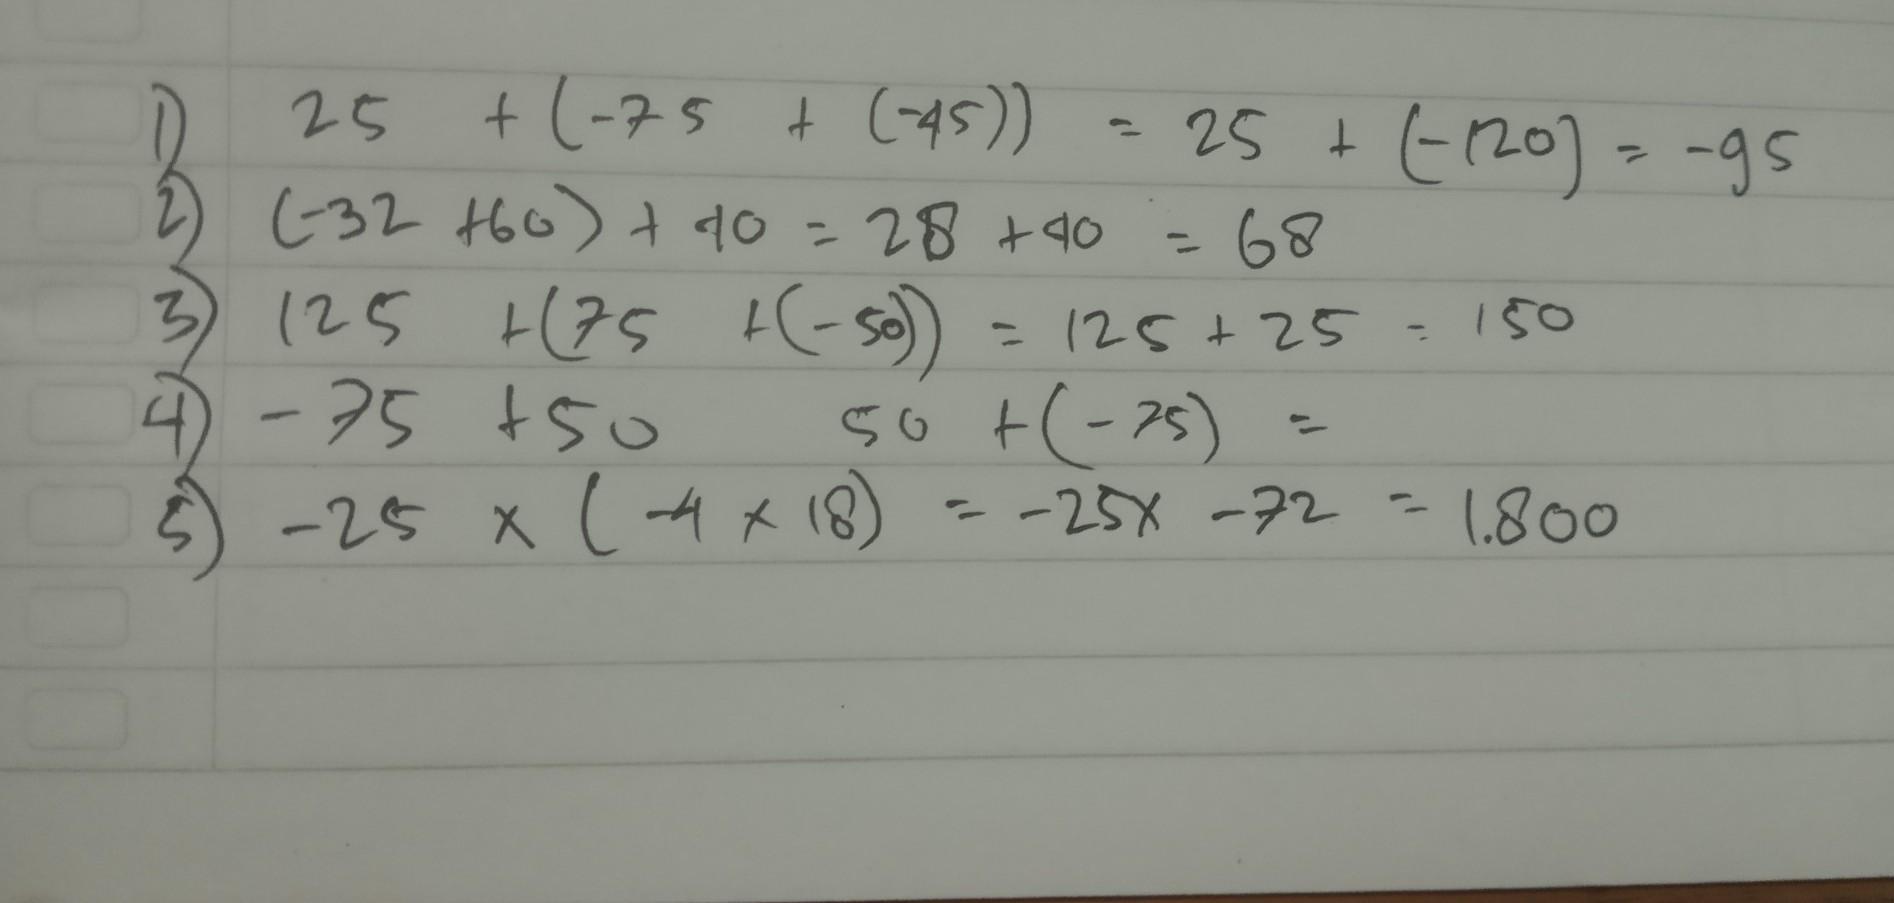 1) 25 + (-75 + (-45)) = 25 + (-120) = -95
2) (-32 +60) + 40 = 28 + 40 = 68
3) 125 + (75 + (-50)) = 125 + 25 = 150
4) -75 +50 50 + (-75) =
5) -25 x (-4 x 18) = -25x -72 = 1.800